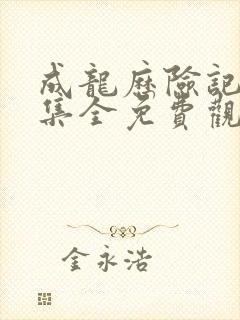 成龍歷險記
集全免費觀
金永浩